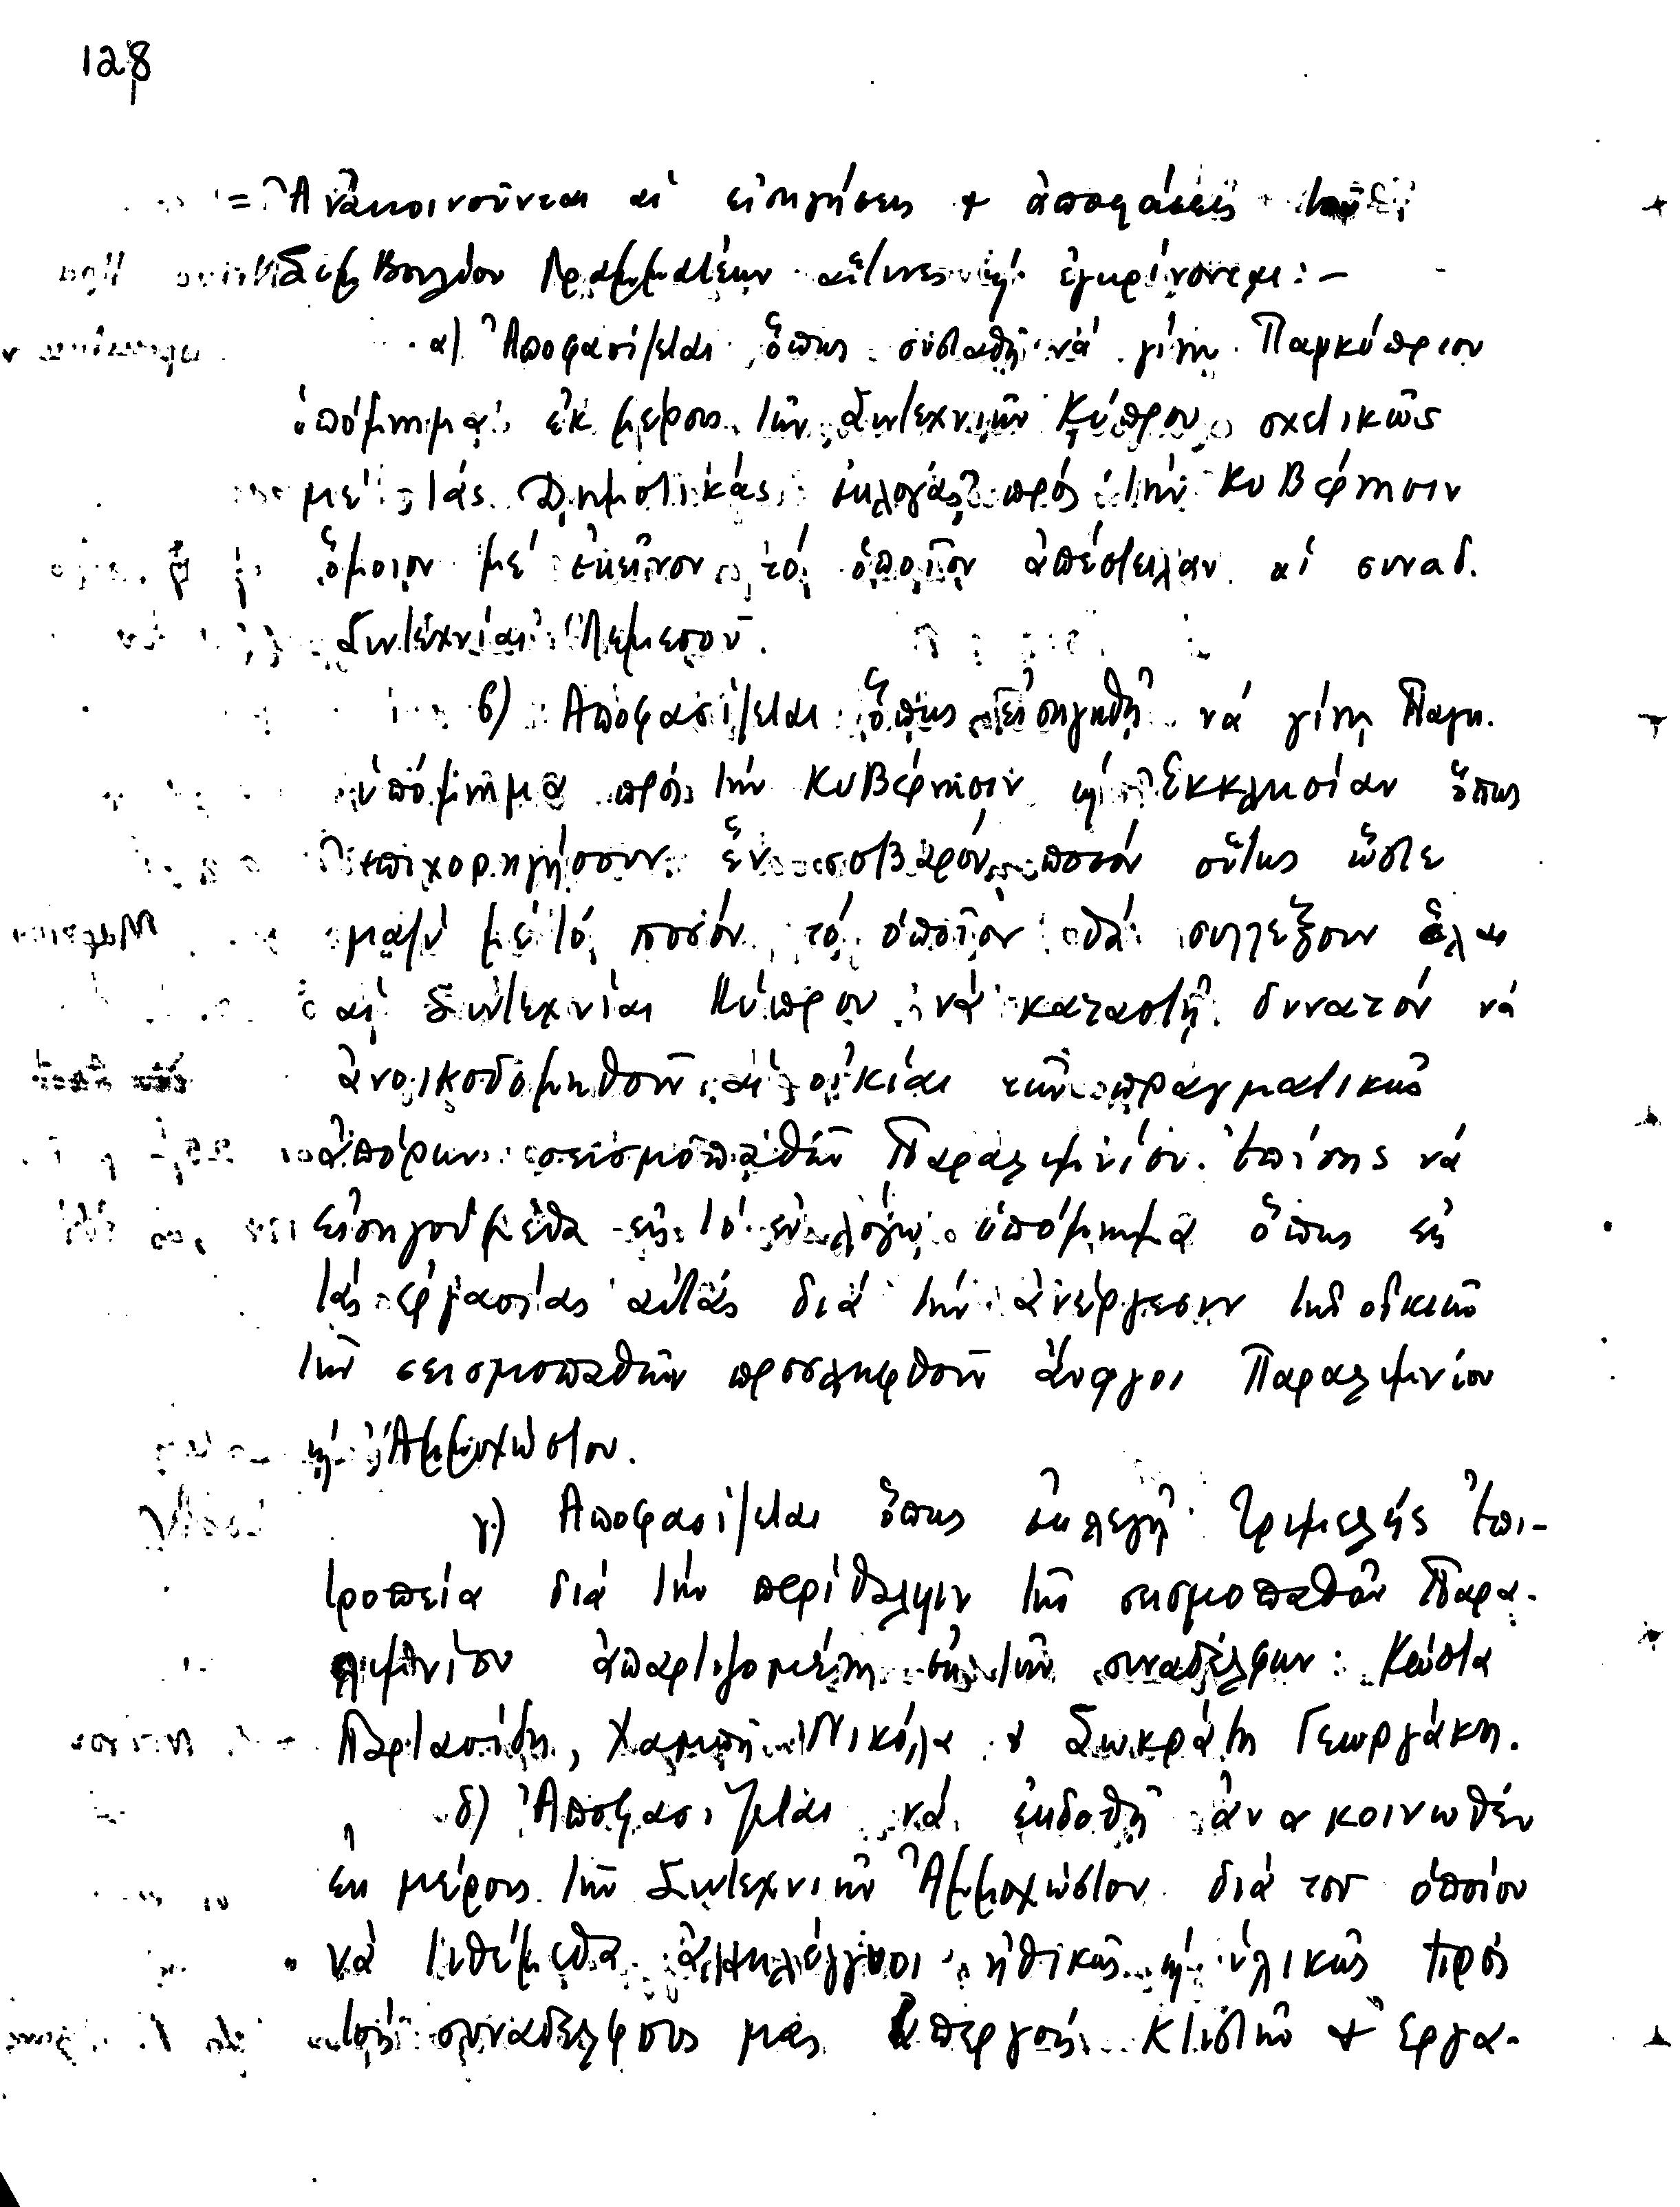 128
= Ἀνακοινοῦνται αἱ εἰσηγήσεις & ἀποφάσεις τοῦ
Συμβουλίου Γραμματέων αἵτινες κ' ἐγκρίνονται: —
α) Ἀποφασίζεται ὅπως συσταθῇ νά γίνῃ Παγκύπριον
ὑπόμνημα ἐκ μέρους τῶν Συντεχνιῶν Κύπρου σχετικῶς
μέ τάς Δημοτικάς ἐκλογάς πρός τήν Κυβέρνησιν
ὅμοιον μέ ἐκεῖνον τό ὁποῖον ἀπέστειλαν αἱ συναδ.
Συντεχνίαι Λεμεσοῦ.
β) Ἀποφασίζεται ὅπως εἰσηγηθῇ νά γίνῃ Παγκ.
ὑπόμνημα πρός τήν Κυβέρνησιν κ' Ἐκκλησίαν ὅπως
ἐπιχορηγήσουν ἕν σοβαρόν ποσόν οὕτως ὥστε
μαζύ μέ τό ποσόν τό ὁποῖον θά συλλέξουν ὅλαι
αἱ Συντεχνίαι Κύπρου νά καταστῇ δυνατόν νά
ἀνοικοδομηθοῦν αἱ οἰκίαι τῶν πραγματικῶς
ἀπόρων σεισμοπαθῶν Παραλιμνίου. Ἐπίσης νά
εἰσηγούμεθα εἰς τό ἐν λόγῳ ὑπόμνημα ὅπως εἰς
τάς ἐργασίας αὐτάς διά τήν ἀνέργεσιν τῶν οἰκιῶν
τῶν σεισμοπαθῶν προσληφθοῦν ἄνεργοι Παραλιμνίου
κ' Ἀμμοχώστου.
γ) Ἀποφασίζεται ὅπως ἐκλεγῇ Τριμελής Ἐπι-
τροπεία διά τήν περίθαλψιν τῶν σεισμοπαθῶν Παρα-
λιμνίου ἀπαρτιζομένη ἐκ τῶν συναδέλφων: Κώστα
Παρτασίδη, Χαμπῆ Νικόλα & Σωκράτη Γεωργάκη.
δ) Ἀποφασίζεται νά ἐκδοθῇ ἀνακοινωθέν
ἐκ μέρους τῶν Συντεχνιῶν Ἀμμοχώστου διά τοῦ ὁποίου
νά τιθέμεθα ἀλληλέγγυοι ἠθικῶς κ' ὑλικῶς πρός
τούς συναδέλφους μας ἀπεργούς Κτιστῶν & Ἐργα-